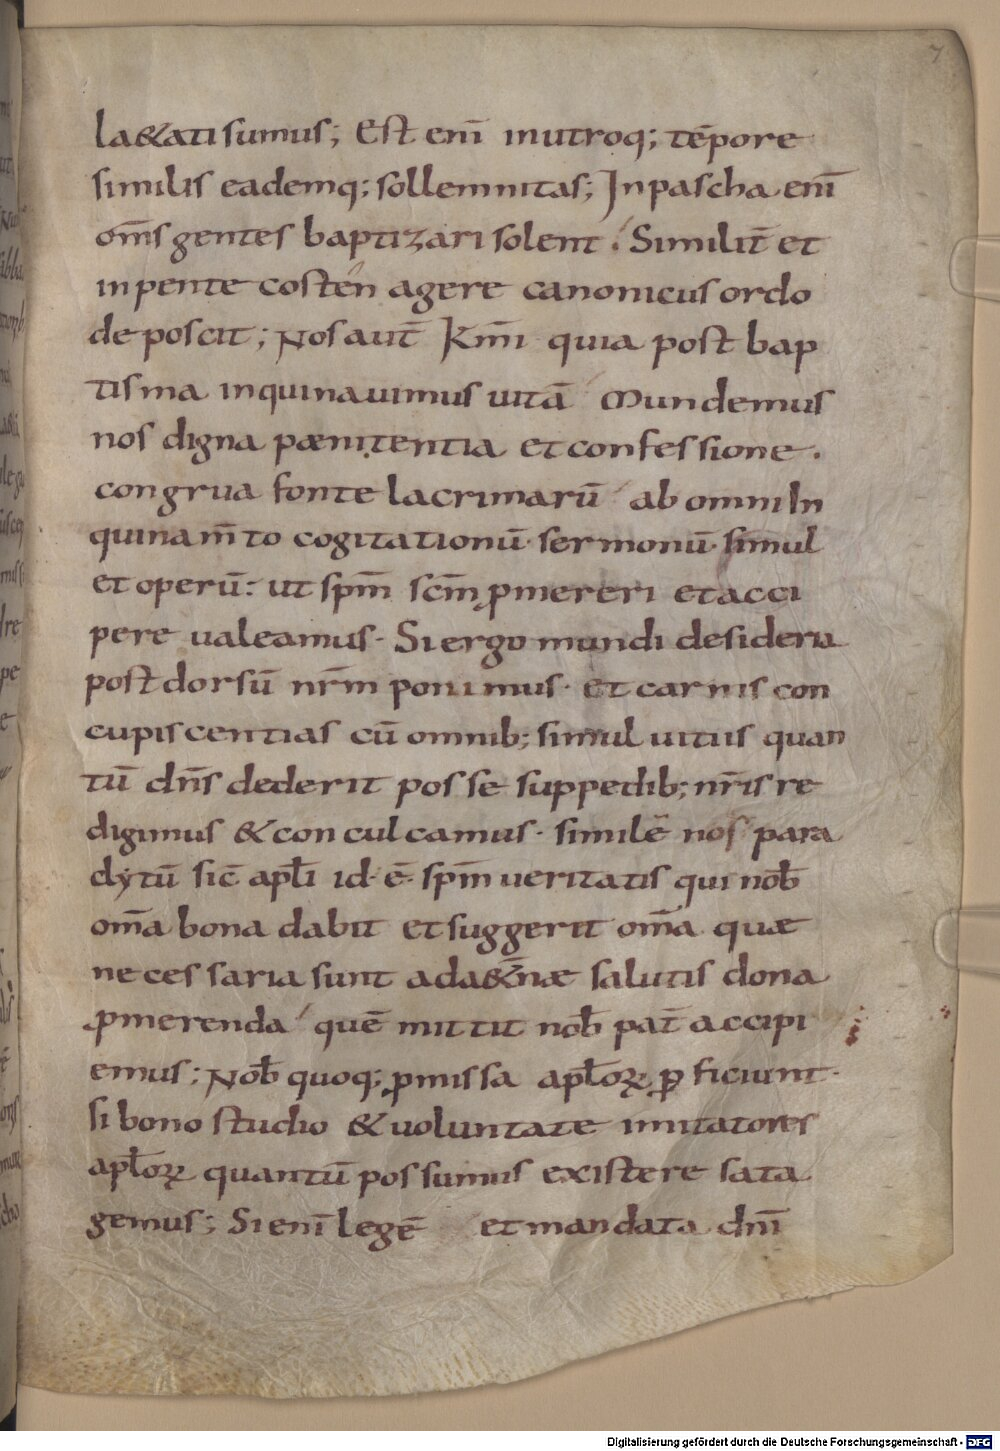 7
la&ati sumus; Est enī inutroq; tēpore
similis eademq; sollemnitas; Inpascha enī
om̄s gentes baptizari solent. Similit̄ et
inpente costēn agere canonicus ordo
deposcit; Nos aut̄ Km̄i quia post bap
tisma inquinauimus uitā Mundemus
nos digna pænitentia et confessione.
congrua fonte lacrimarū ab omni In
quinam̄to cogitationū· sermonū· simul
et operū: ut sp̄m sc̄m ꝓmereri et acci
pere ualeamus· Si ergo mundi desideria
post dorsū nr̄m ponimus· et carnis con
cupiscentias cū omnib; simul uitiis quan
tū dn̄s dederit posse suppedib; nr̄is re
digimus & conculcamus· similē nos para
clytū sic̄ apl̄i id·ē· sp̄m ueritatis qui nob̄
om̄a bona dabit et suggerit om̄a quæ
necessaria sunt ada&̄næ salutis dona
ꝓmerenda quē mittit nob̄ pat̄ accipi
emus; Nob̄ quoq; ꝓmissa apl̄oꝝ ꝑficiunt·
si bono studio & uoluntate imitatores
apl̄oꝝ quantū possumus existere sata
gemus; Si enī legē et mandata dn̄i
Digitalisierung gefördert durch die Deutsche Forschungsgemeinschaft - DFG